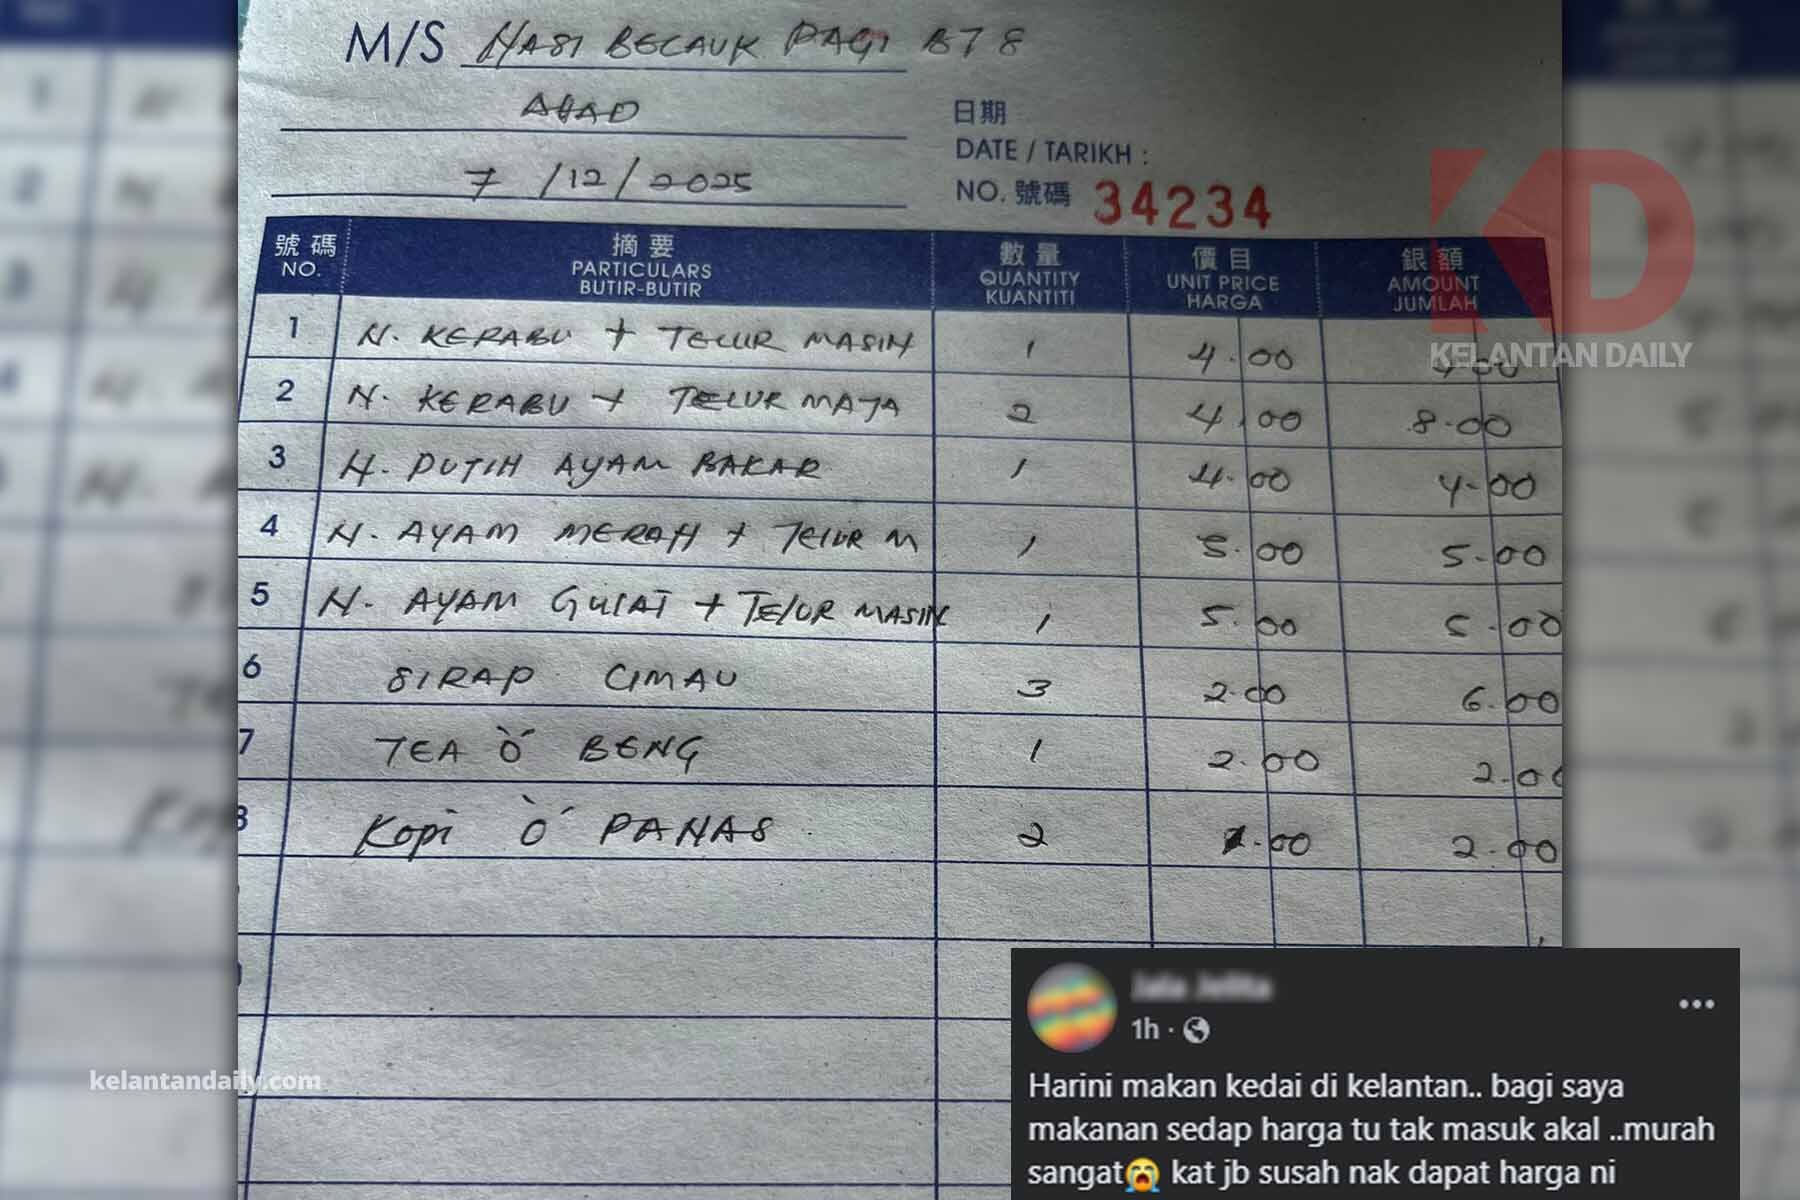 M/S NASI BECAUK PAGI BT 8
AHAD
7/12/2025
日期
DATE / TARIKH :
NO. 號碼 34234
號碼 NO. 摘要 PARTICULARS BUTIR-BUTIR 數量 QUANTITY KUANTITI 價目 UNIT PRICE HARGA 銀額 AMOUNT JUMLAH
1 N. KERABU + TELUR MASIN 1 4.00 4.00
2 N. KERABU + TELUR MATA 2 4.00 8.00
3 N. PUTIH AYAM BAKAR 1 4.00 4.00
4 N. AYAM MERAH + TELUR M 1 5.00 5.00
5 N. AYAM GULAI + TELUR MASIN 1 5.00 5.00
6 SIRAP LIMAU 3 2.00 6.00
7 TEA 'O' BENG 1 2.00 2.00
8 KOPI 'O' PANAS 2 1.00 2.00
KD
KELANTAN DAILY
kelantandaily.com
1h
Harini makan kedai di kelantan.. bagi saya
makanan sedap harga tu tak masuk akal ..murah
sangat😭 kat jb susah nak dapat harga ni